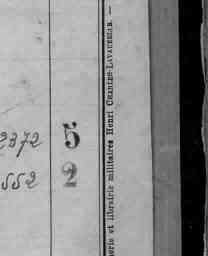 2372 5
552 2
erie et librairie militaires Henri CHARLES-LAVAUZELLE. —